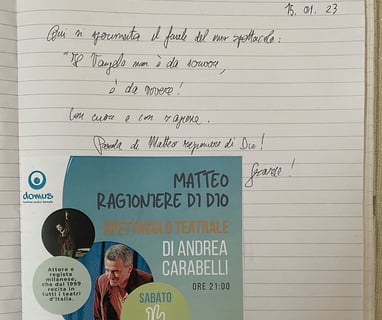 15.01.23
Qui si sperimenta il finale del mio spettacolo:
"Il Vangelo non è da
è da vivere!
Con cuore e con ragione.
Parola di Matteo ragioniere di Dio!
Grazie!
domus
MATTEO
RAGIONIERE DI DIO
SPETTACOLO TEATRALE
DI ANDREA
CARABELLI
ORE 21:00
Attore e
regista
milanese,
che dal 1999
recita in
tutti i teatri
d'Italia.
SABATO
14